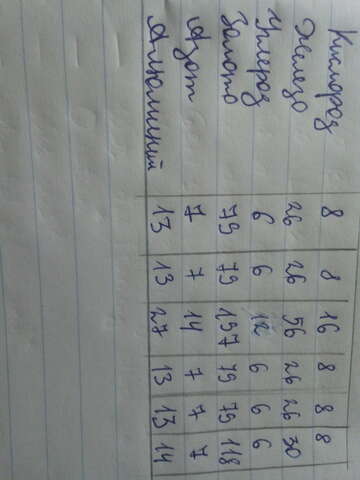 Кислород 8 8 16 8 8 8
Железо 26 26 56 26 26 30
Углерод 6 6 12 6 6 6
Золото 79 79 197 79 79 118
Азот 7 7 14 7 7 7
Алюминий 13 13 27 13 13 14